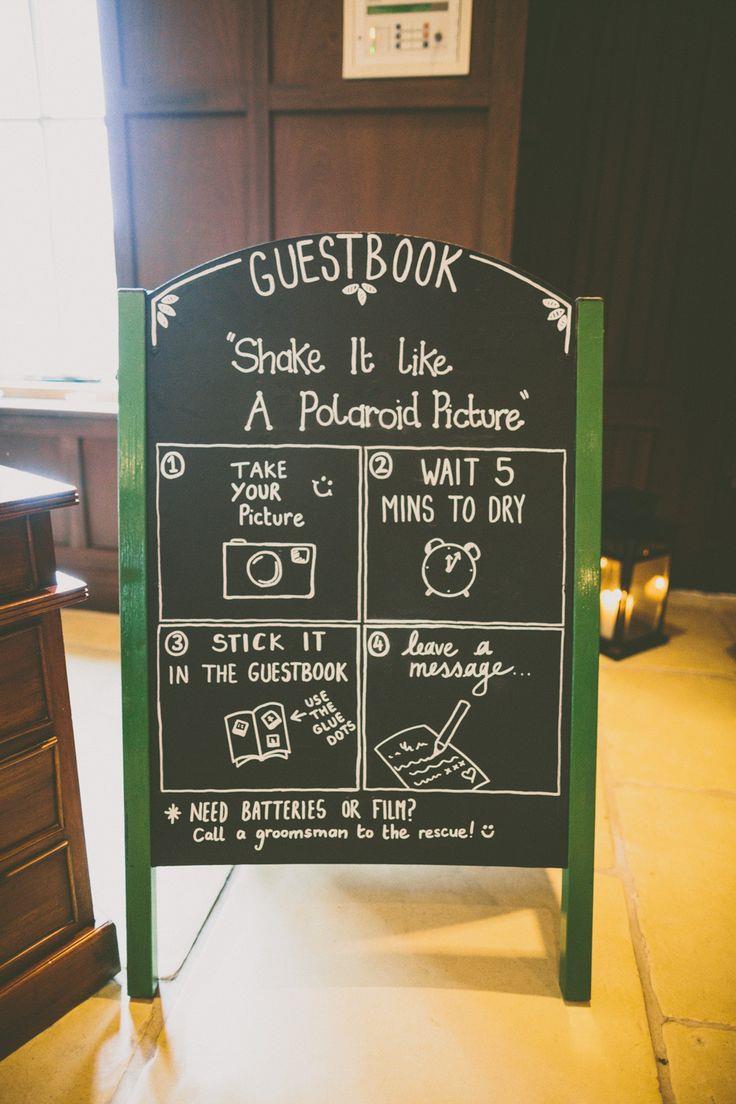 GUESTBOOK
"Shake It Like
A Polaroid Picture"
1
TAKE
YOUR
Picture
2
WAIT 5
MINS TO DRY
3
STICK IT
IN THE GUESTBOOK
USE
THE
GLUE
DOTS
4
leave a
message...
* NEED BATTERIES OR FILM?
Call a groomsman to the rescue!